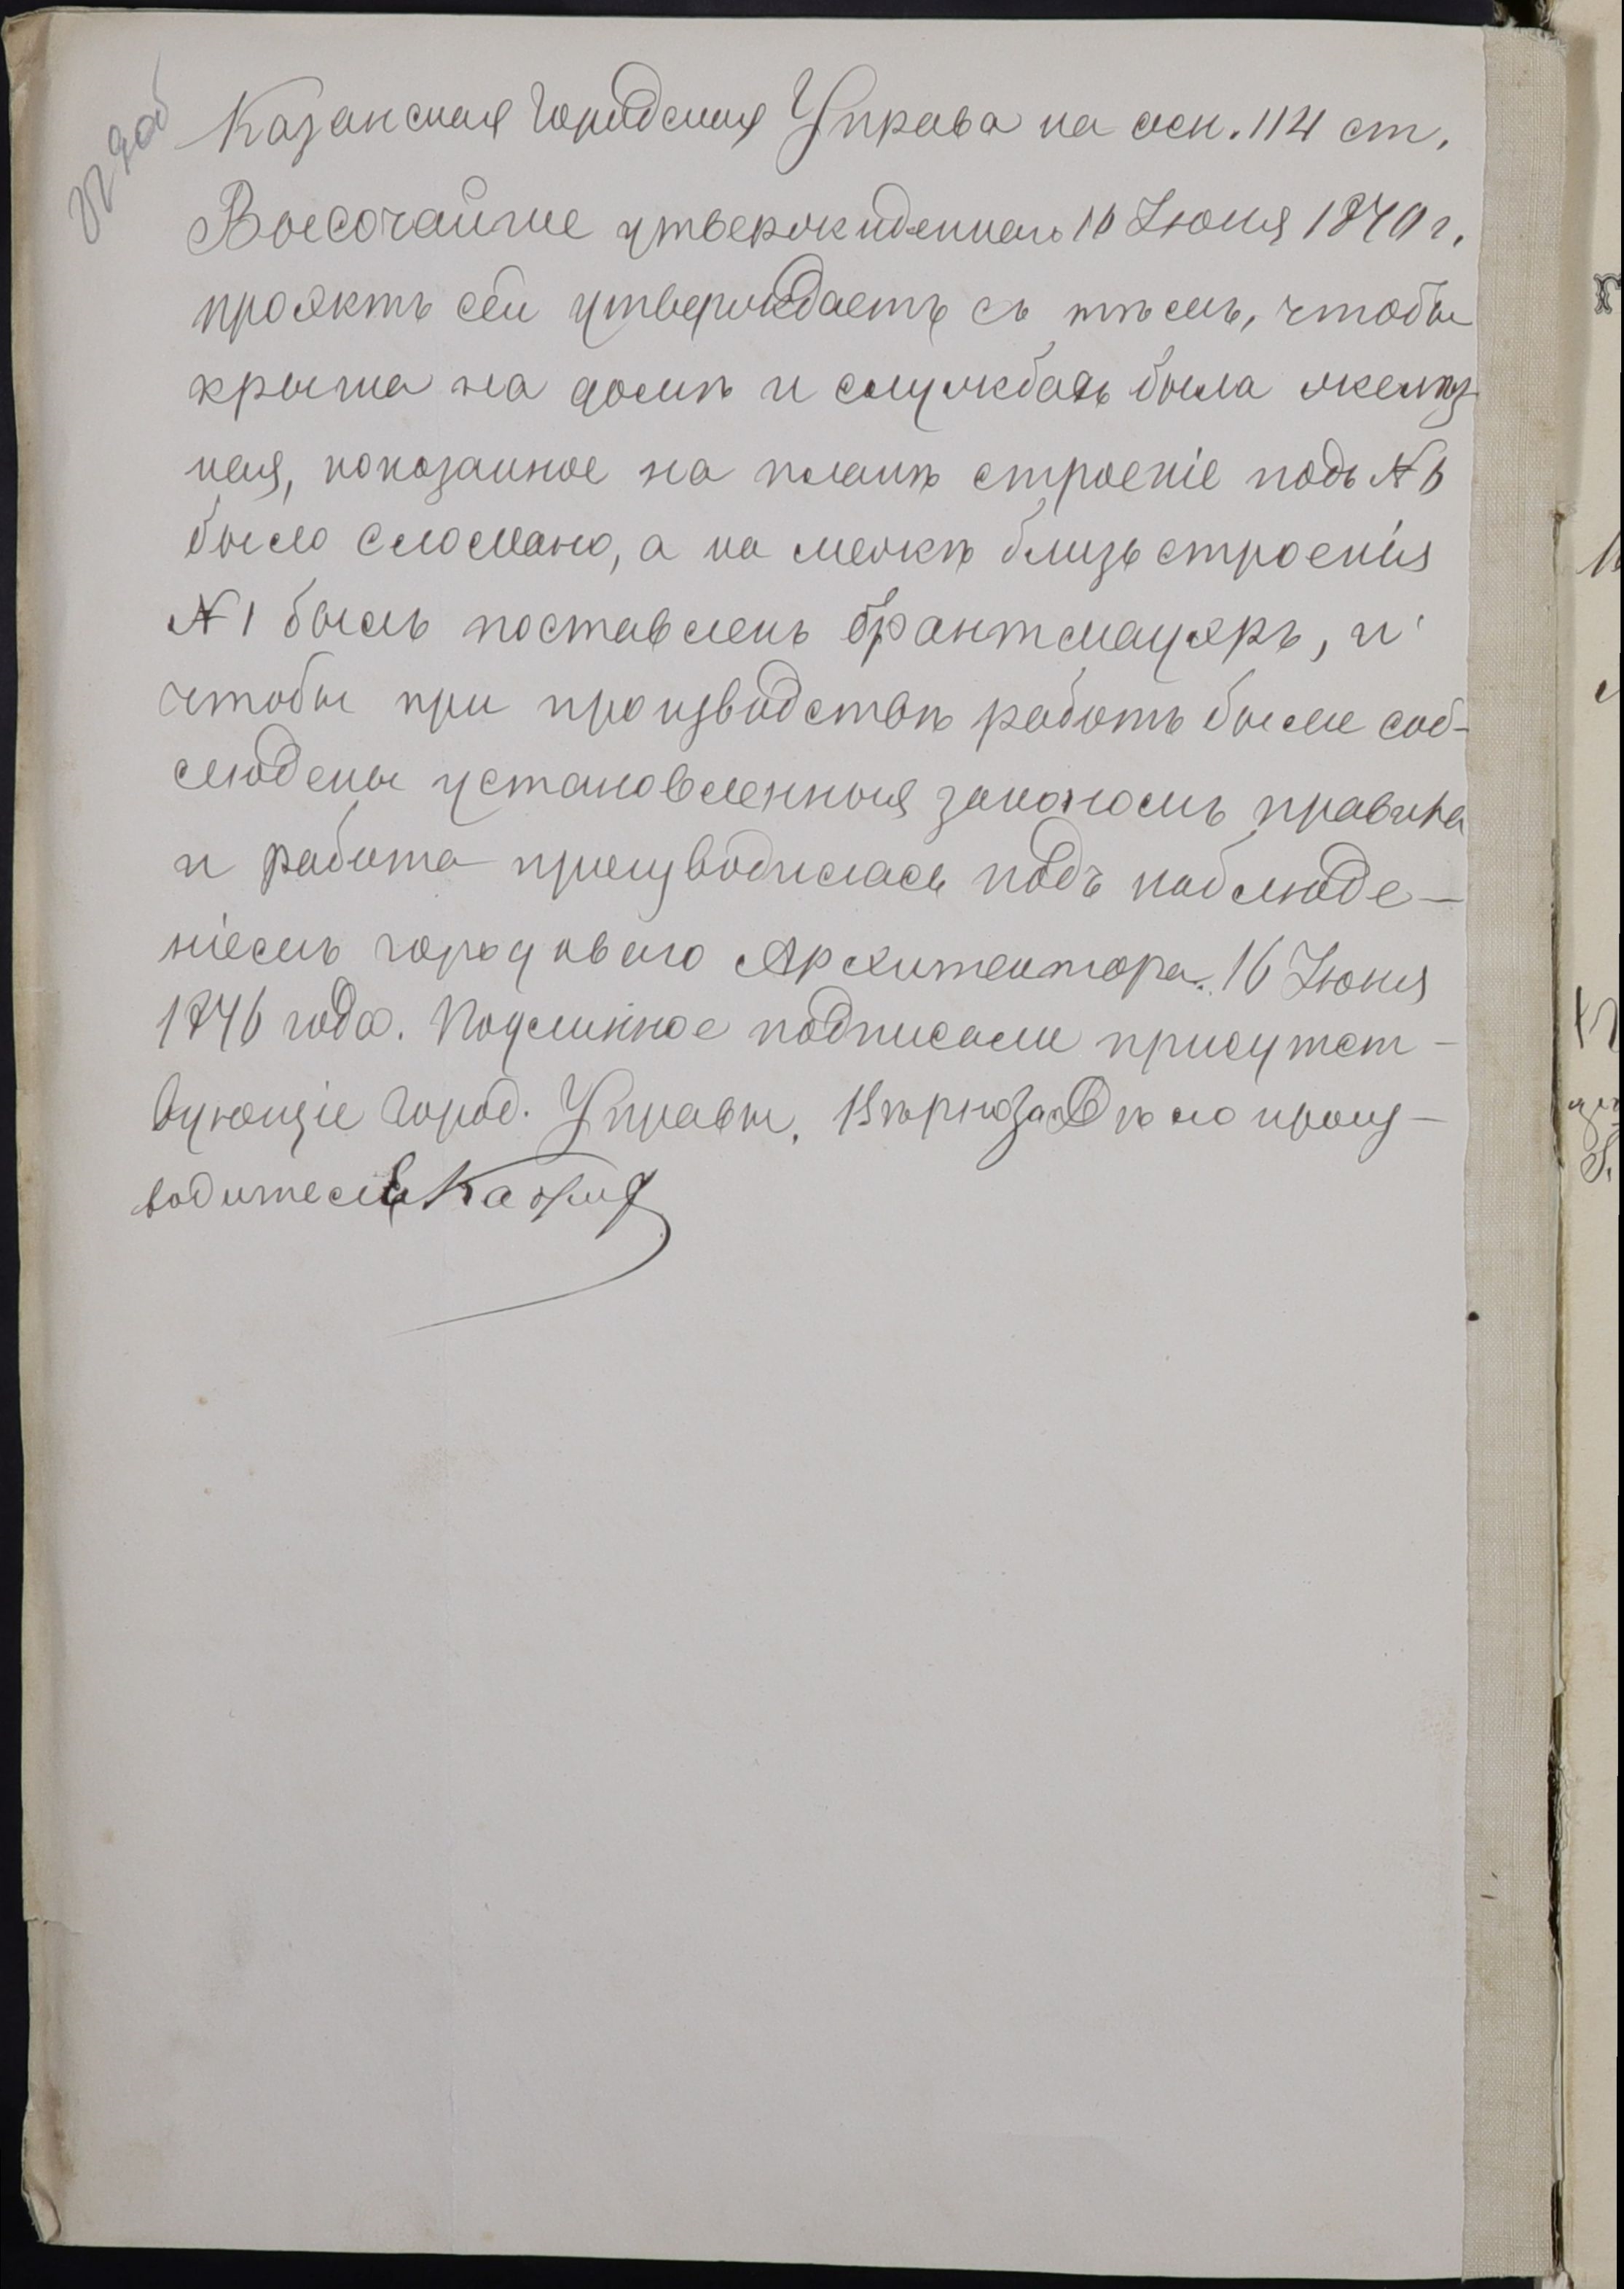 Казанская Городская Управа на осн. 114 ст.
Высочайше утвержденнаго 16 Июня 1870 г.
проэктъ сей утверждаетъ съ тѣмъ, чтобы
крыша на домѣ и службахъ была желѣз-
ная, показанное на планѣ строеніе подъ №6
было сломано, а на межѣ близь строенія
№1 былъ поставленъ брантмауэръ, и
чтобы при производствѣ работъ были соб-
людены установленныя закономъ правила
и работа производилась подъ наблюде-
ніемъ городоваго Архитектора. 16 Июня
1876 года. Подлинное подписали присутст-
вующіе Город. Управы. Вѣрно: за Дѣлопроиз-
водителя